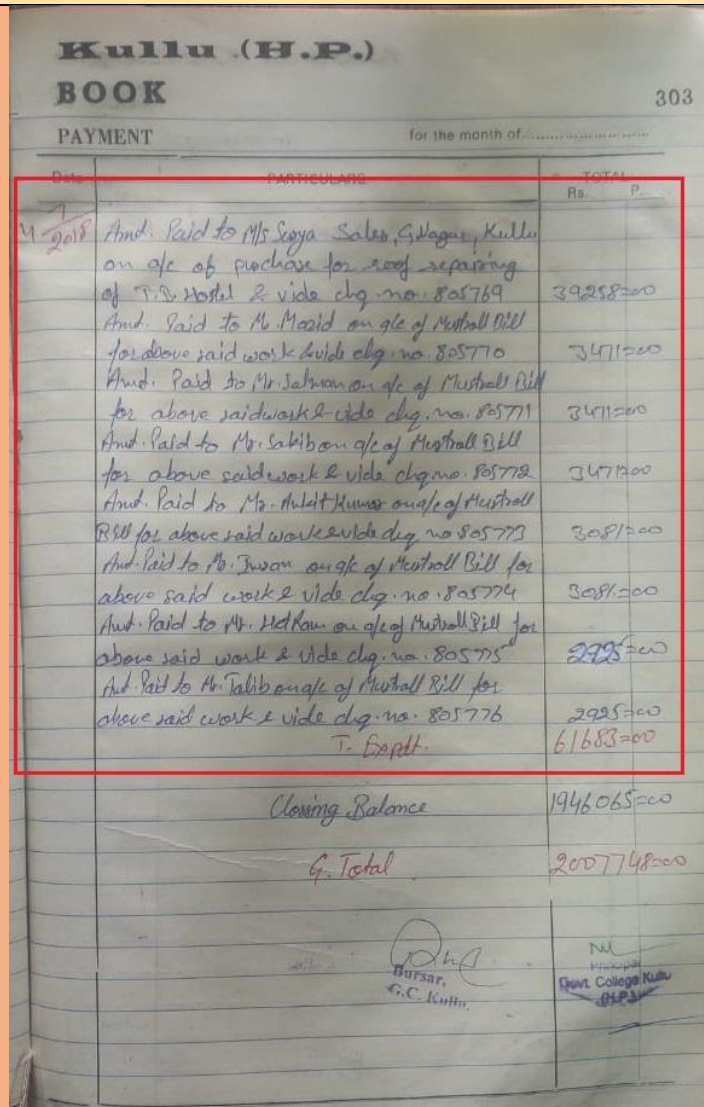 Kullu (H.P.)
BOOK
303
PAYMENT for the month of
Date PARTICULARS TOTAL
Rs. P.
4 7/2018 Amt. Paid to M/s Surya Sales, G. Nagar, Kullu
on a/c of purchase for roof repairing
of T.B. Hostel & vide chq. no. 805769 39258=00
Amt. Paid to Mr. Mazid on a/c of Mustroll Bill
for above said work & vide chq. no. 805770 3471=00
Amt. Paid to Mr. Salman on a/c of Mustroll Bill
for above said work & vide chq. no. 805771 3471=00
Amt. Paid to Mr. Sakib on a/c of Mustroll Bill
for above said work & vide chq no. 805772 3471=00
Amt. Paid to Mr. Ankit Kumar on a/c of Mustroll
Bill for above said work & vide chq. no 805773 3081=00
Amt. Paid to Mr. on a/c of Mustroll Bill for
above said work & vide chq. no. 805774 3081=00
Amt. Paid to Mr. Het Ram on a/c of Mustroll Bill for
above said work & vide chq. no. 805775 2925=00
Amt. Paid to Mr. Talib on a/c of Mustroll Bill for
above said work & vide chq. no. 805776 2925=00
T. Expdt. 61683=00
Closing Balance 1946065=00
G. Total 2007748=00
Bursar,
G.C. Kullu.
Principal
Govt. College Kullu
(H.P.)